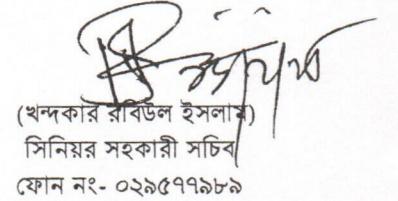 (খন্দকার রবিউল ইসলাম)
সিনিয়র সহকারী সচিব
ফোন নং- ০২৯৫৭৭৯৮৯